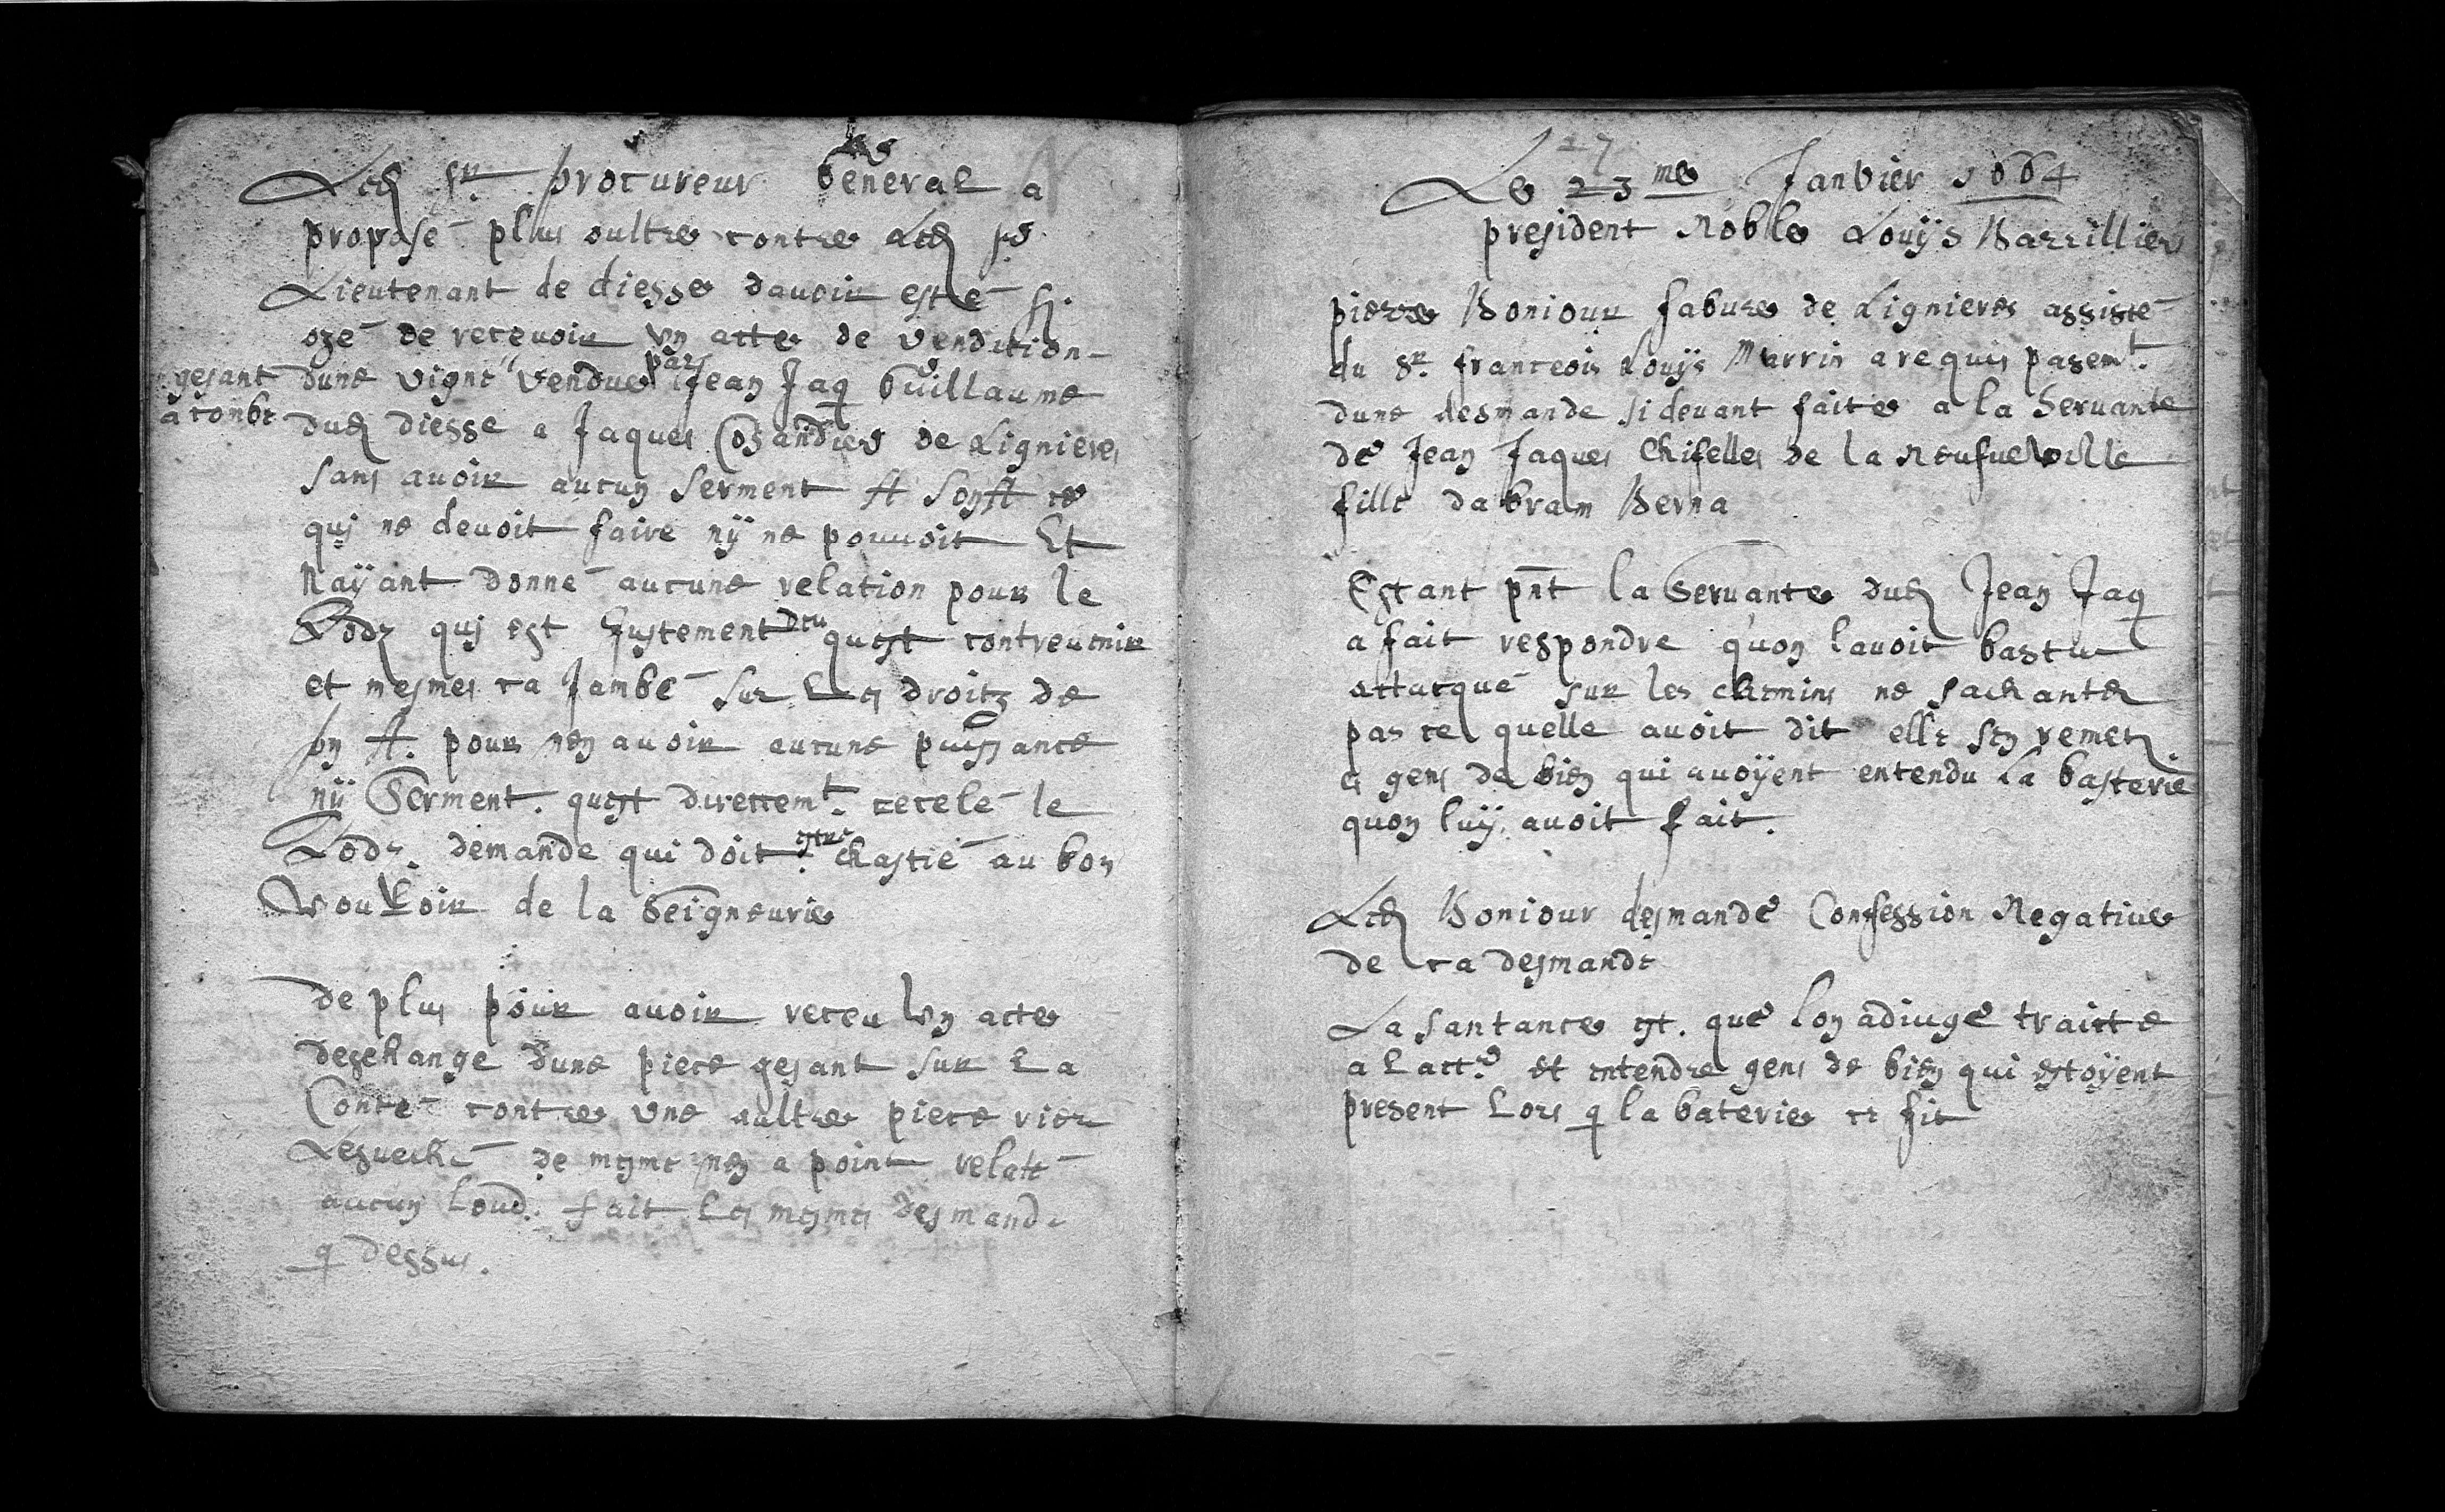 Led Sr. procureur General a
proposé plus oultre contre Led Sr
Lieutenant de diesse dauoir esté si
ozé de receuoir vn acte de vendition
gesant dune vigne vendue par Jean Jaq Guillaume
a conbe dud diesse a Jaques Cosandier de Lignieres
sans auoir aucun serment A Son A ce
quj ne deuoit faire nÿ ne pouuoit Et
Naÿant donné aucune relation pour le
Lodz quj est Justement deu quest contreuenir
et mesmes ca Jambé sur Les droitz de
sn A. pour nen auoir aucune puissance
nÿ Serment. quest directemt. recelé le
Lodz. demande qui doit estre chastié au bon
vouloir de la Seigneurie
de plus pour auoir receu vn acte
deschange dune piece gesant sur La
Conté contre vne aultre piece rier
Lesueché de mesme nen a point relaté
aucun Loud. fait Les mesmes desmande
q dessus.
27
Le 23me Januier 1664
president Noble Louÿs Barillier
pierre Boniour fabure de Lignieres assisté
du Sr. franceois Louÿs Marrin a requis pasemt.
dune desmande si deuant faite a la Seruante
de Jean Jaques Chifelles de la Neufueville
fille dabram Berna
Estant pnt la Seruante dud Jean Jaq
a fait respondre quon lauoit bastu
attacqué sur les chemins ne sachante
pas ce quelle auoit dit elle sen remet
es gens de bien qui auoÿent entendu La basterie
quon luÿ auoit fait.
Led Boniour desmande Confession Negatiue
de ca desmande
La santance est. que lon adiuge traitte
a Lactr et entendre gens de bien qui estoÿent
present Lors q la baterie ce fit